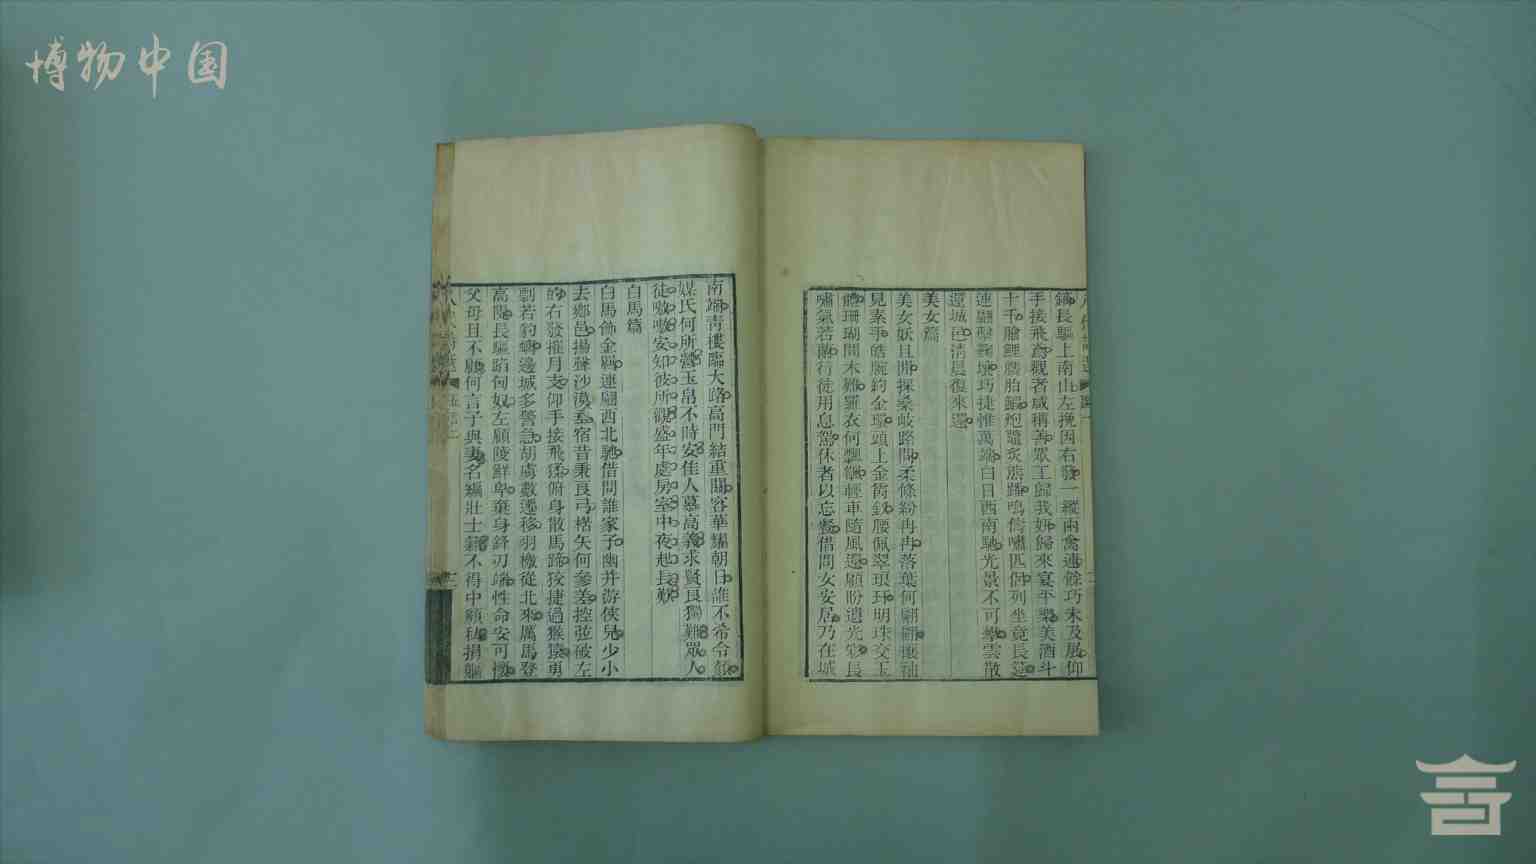 博物中国
鏑長驅上南山左挽因右發一縱兩禽連餘巧未及展仰
手接飛鳶觀者咸稱善眾工歸我妍歸來宴平樂美酒斗
十千膾鯉臇胎鰕炮鼈炙熊蹯鳴儔嘯匹侶列坐竟長筵
連翩擊鞠壤巧捷惟萬端白日西南馳光景不可攀雲散
還城邑清晨復來還
美女篇
美女妖且閒採桑岐路間柔條紛冉冉落葉何翩翩攘袖
見素手皓腕約金環頭上金爵釵腰佩翠琅玕明珠交玉
體珊瑚間木難羅衣何飄颻輕裾隨風還顧盼遺光彩長
嘯氣若蘭行徒用息駕休者以忘餐借問女安居乃在城
南端青樓臨大路高門結重關容華耀朝日誰不希令顏
媒氏何所營玉帛不時安佳人慕高義求賢良獨難眾人
徒嗷嗷安知彼所觀盛年處房室中夜起長歎
白馬篇
白馬飾金羈連翩西北馳借問誰家子幽并游俠兒少小
去鄉邑揚聲沙漠垂宿昔秉良弓楛矢何參差控弦破左
的右發摧月支仰手接飛猱俯身散馬蹄狡捷過猴猿勇
剽若豹螭邊城多警急胡虜數遷移羽檄從北來厲馬登
高隄長驅蹈匈奴左顧陵鮮卑棄身鋒刃端性命安可懷
父母且不顧何言子與妻名編壯士籍不得中顧私捐軀